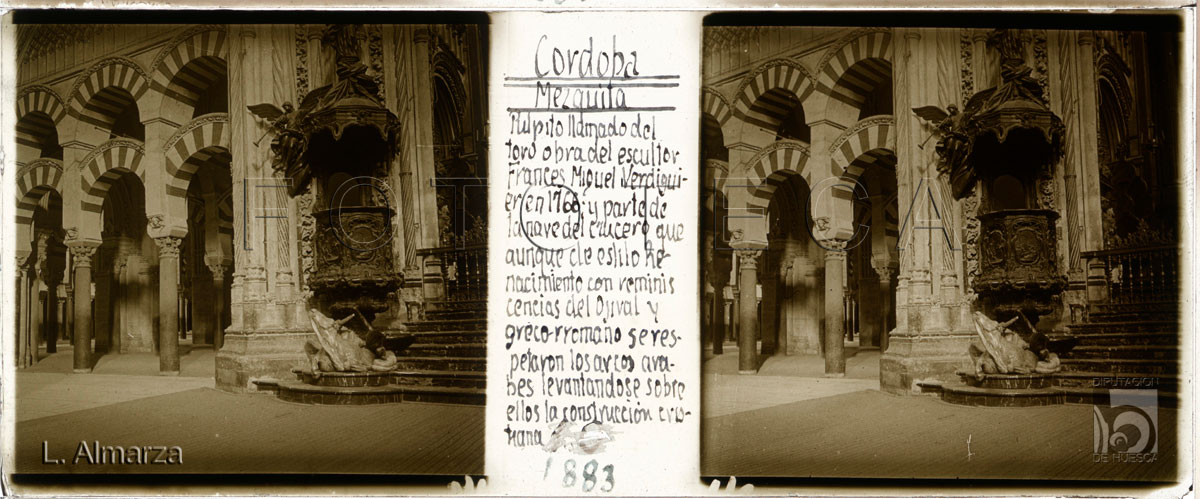 Cordoba
Mezquita
Pulpito llamado del
toro obra del escultor
frances Miguel Verdigui-
er en 1766 y parte de
la nave del crucero que
aunque de estilo Re-
nacimiento con reminis
cencias del Ojival y
greco-rromano se res-
petaron los arcos ara-
bes levantandose sobre
ellos la construcción cris-
tiana
1883
FOTOTECA
L. Almarza
DIPUTACIÓN
DE HUESCA